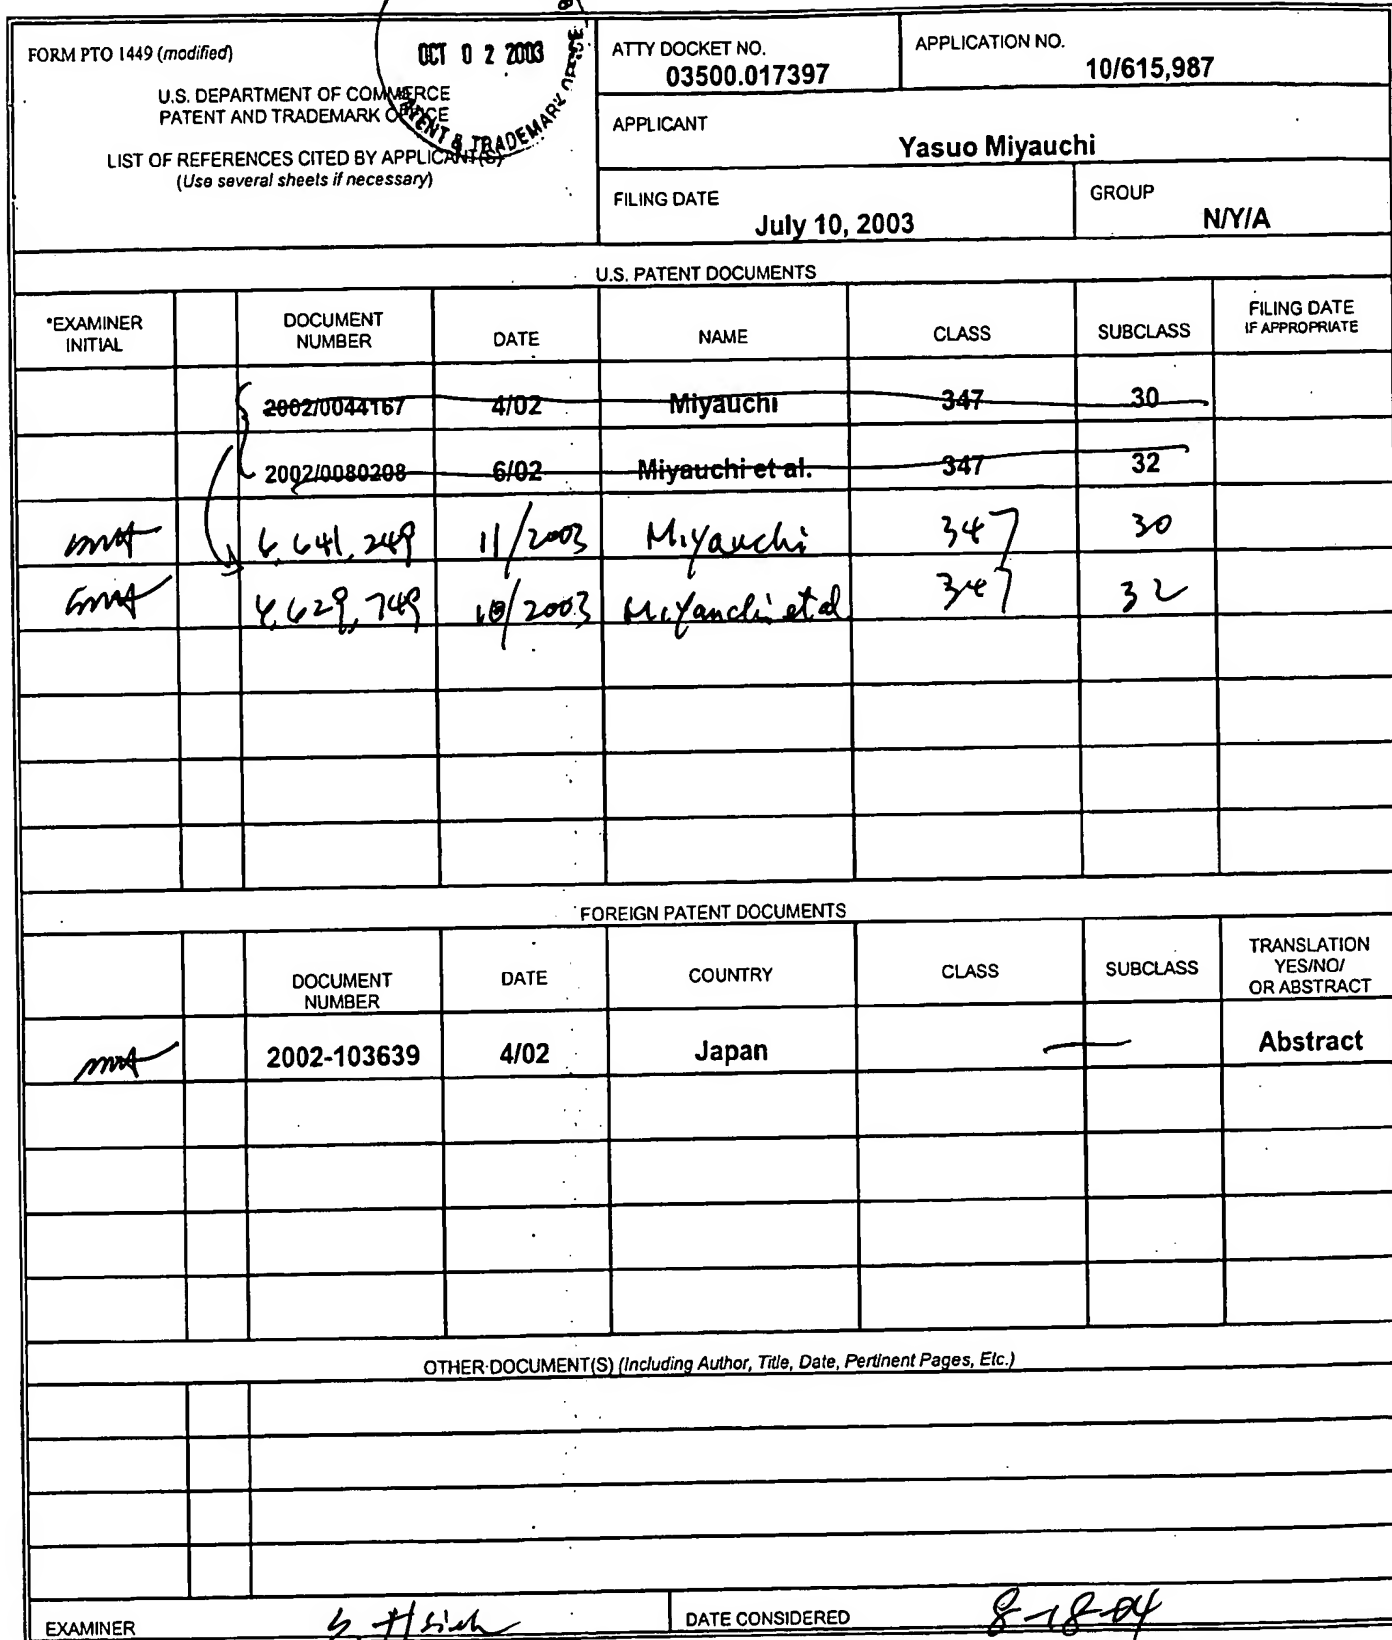 FORM PTO 1449 (modified)
U.S. DEPARTMENT OF COMMERCE
PATENT AND TRADEMARK OFFICE
LIST OF REFERENCES CITED BY APPLICANT(S)
(Use several sheets if necessary)
OCT 0 2 2003
PATENT & TRADEMARK OFFICE
ATTY DOCKET NO.
03500.017397
APPLICATION NO.
10/615,987
APPLICANT
Yasuo Miyauchi
FILING DATE
July 10, 2003
GROUP
N/Y/A
U.S. PATENT DOCUMENTS
*EXAMINER INITIAL DOCUMENT NUMBER DATE NAME CLASS SUBCLASS FILING DATE IF APPROPRIATE
2002/0044167 4/02 Miyauchi 347 30
2002/0080208 6/02 Miyauchi et al. 347 32
6,641,249 11/2003 Miyauchi 347 30
6,629,749 10/2003 Miyauchi et al 347 32
FOREIGN PATENT DOCUMENTS
DOCUMENT NUMBER DATE COUNTRY CLASS SUBCLASS TRANSLATION YES/NO/ OR ABSTRACT
2002-103639 4/02 Japan — Abstract
OTHER DOCUMENT(S) (Including Author, Title, Date, Pertinent Pages, Etc.)
EXAMINER Hsieh DATE CONSIDERED 8-18-04